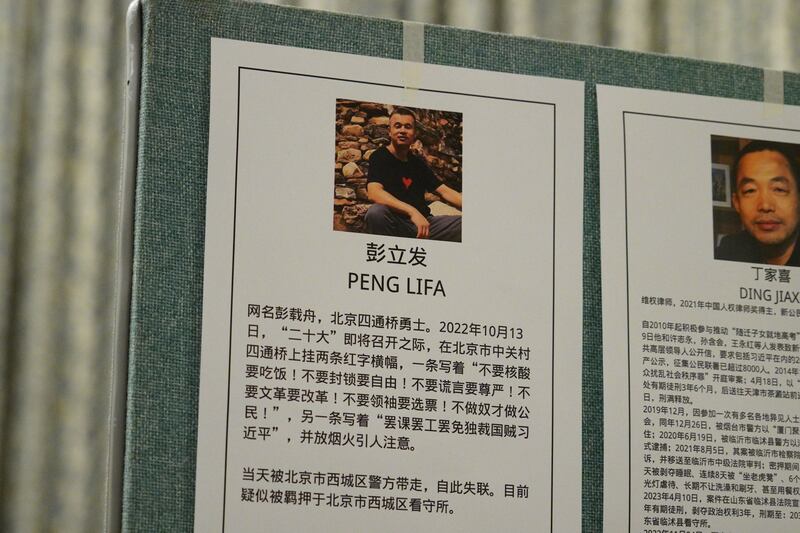 彭立发
PENG LIFA
网名彭载舟，北京四通桥勇士。2022年10月13
日，“二十大”即将召开之际，在北京市中关村
四通桥上挂两条红字横幅，一条写着“不要核酸
要吃饭！不要封锁要自由！不要谎言要尊严！不
要文革要改革！不要领袖要选票！不做奴才做公
民！”，另一条写着“罢课罢工罢免独裁国贼习
近平”，并放烟火引人注意。
当天被北京市西城区警方带走，自此失联。目前
疑似被羁押于北京市西城区看守所。
丁家喜
DING JIAX
维权律师，2021年中国人权律师奖得主，新公民
自2010年起积极参与推动“随迁子女就地高考”
9日他和许志永，孙含会，王永红等人发表致新
共高层领导人公开信，要求包括习近平在内的2
产公示，征集公民联署已超过8000人。2014年
众扰乱社会秩序罪”开庭审案；4月18日，以“
处有期徒刑3年6个月，后送往天津市茶淀站前
日，刑满释放。
2019年12月，因参加一次有多名各地异见人士
会，同年12月26日，被烟台市警方以“厦门聚
住；2020年6月19日，被临沂市临沭县警方以
式逮捕；2021年8月5日，其案被临沂市检察院
诉，并移送至临沂市中级法院审判；密押期间
天被剥夺睡眠、连续8天被“坐老虎凳”、6个
光灯虐待、长期不让洗澡和刷牙、甚至用餐权
2023年4月10日，案件在山东省临沭县法院宣
年有期徒刑，剥夺政治权利3年，刑期至：203
东省临沭县看守所。